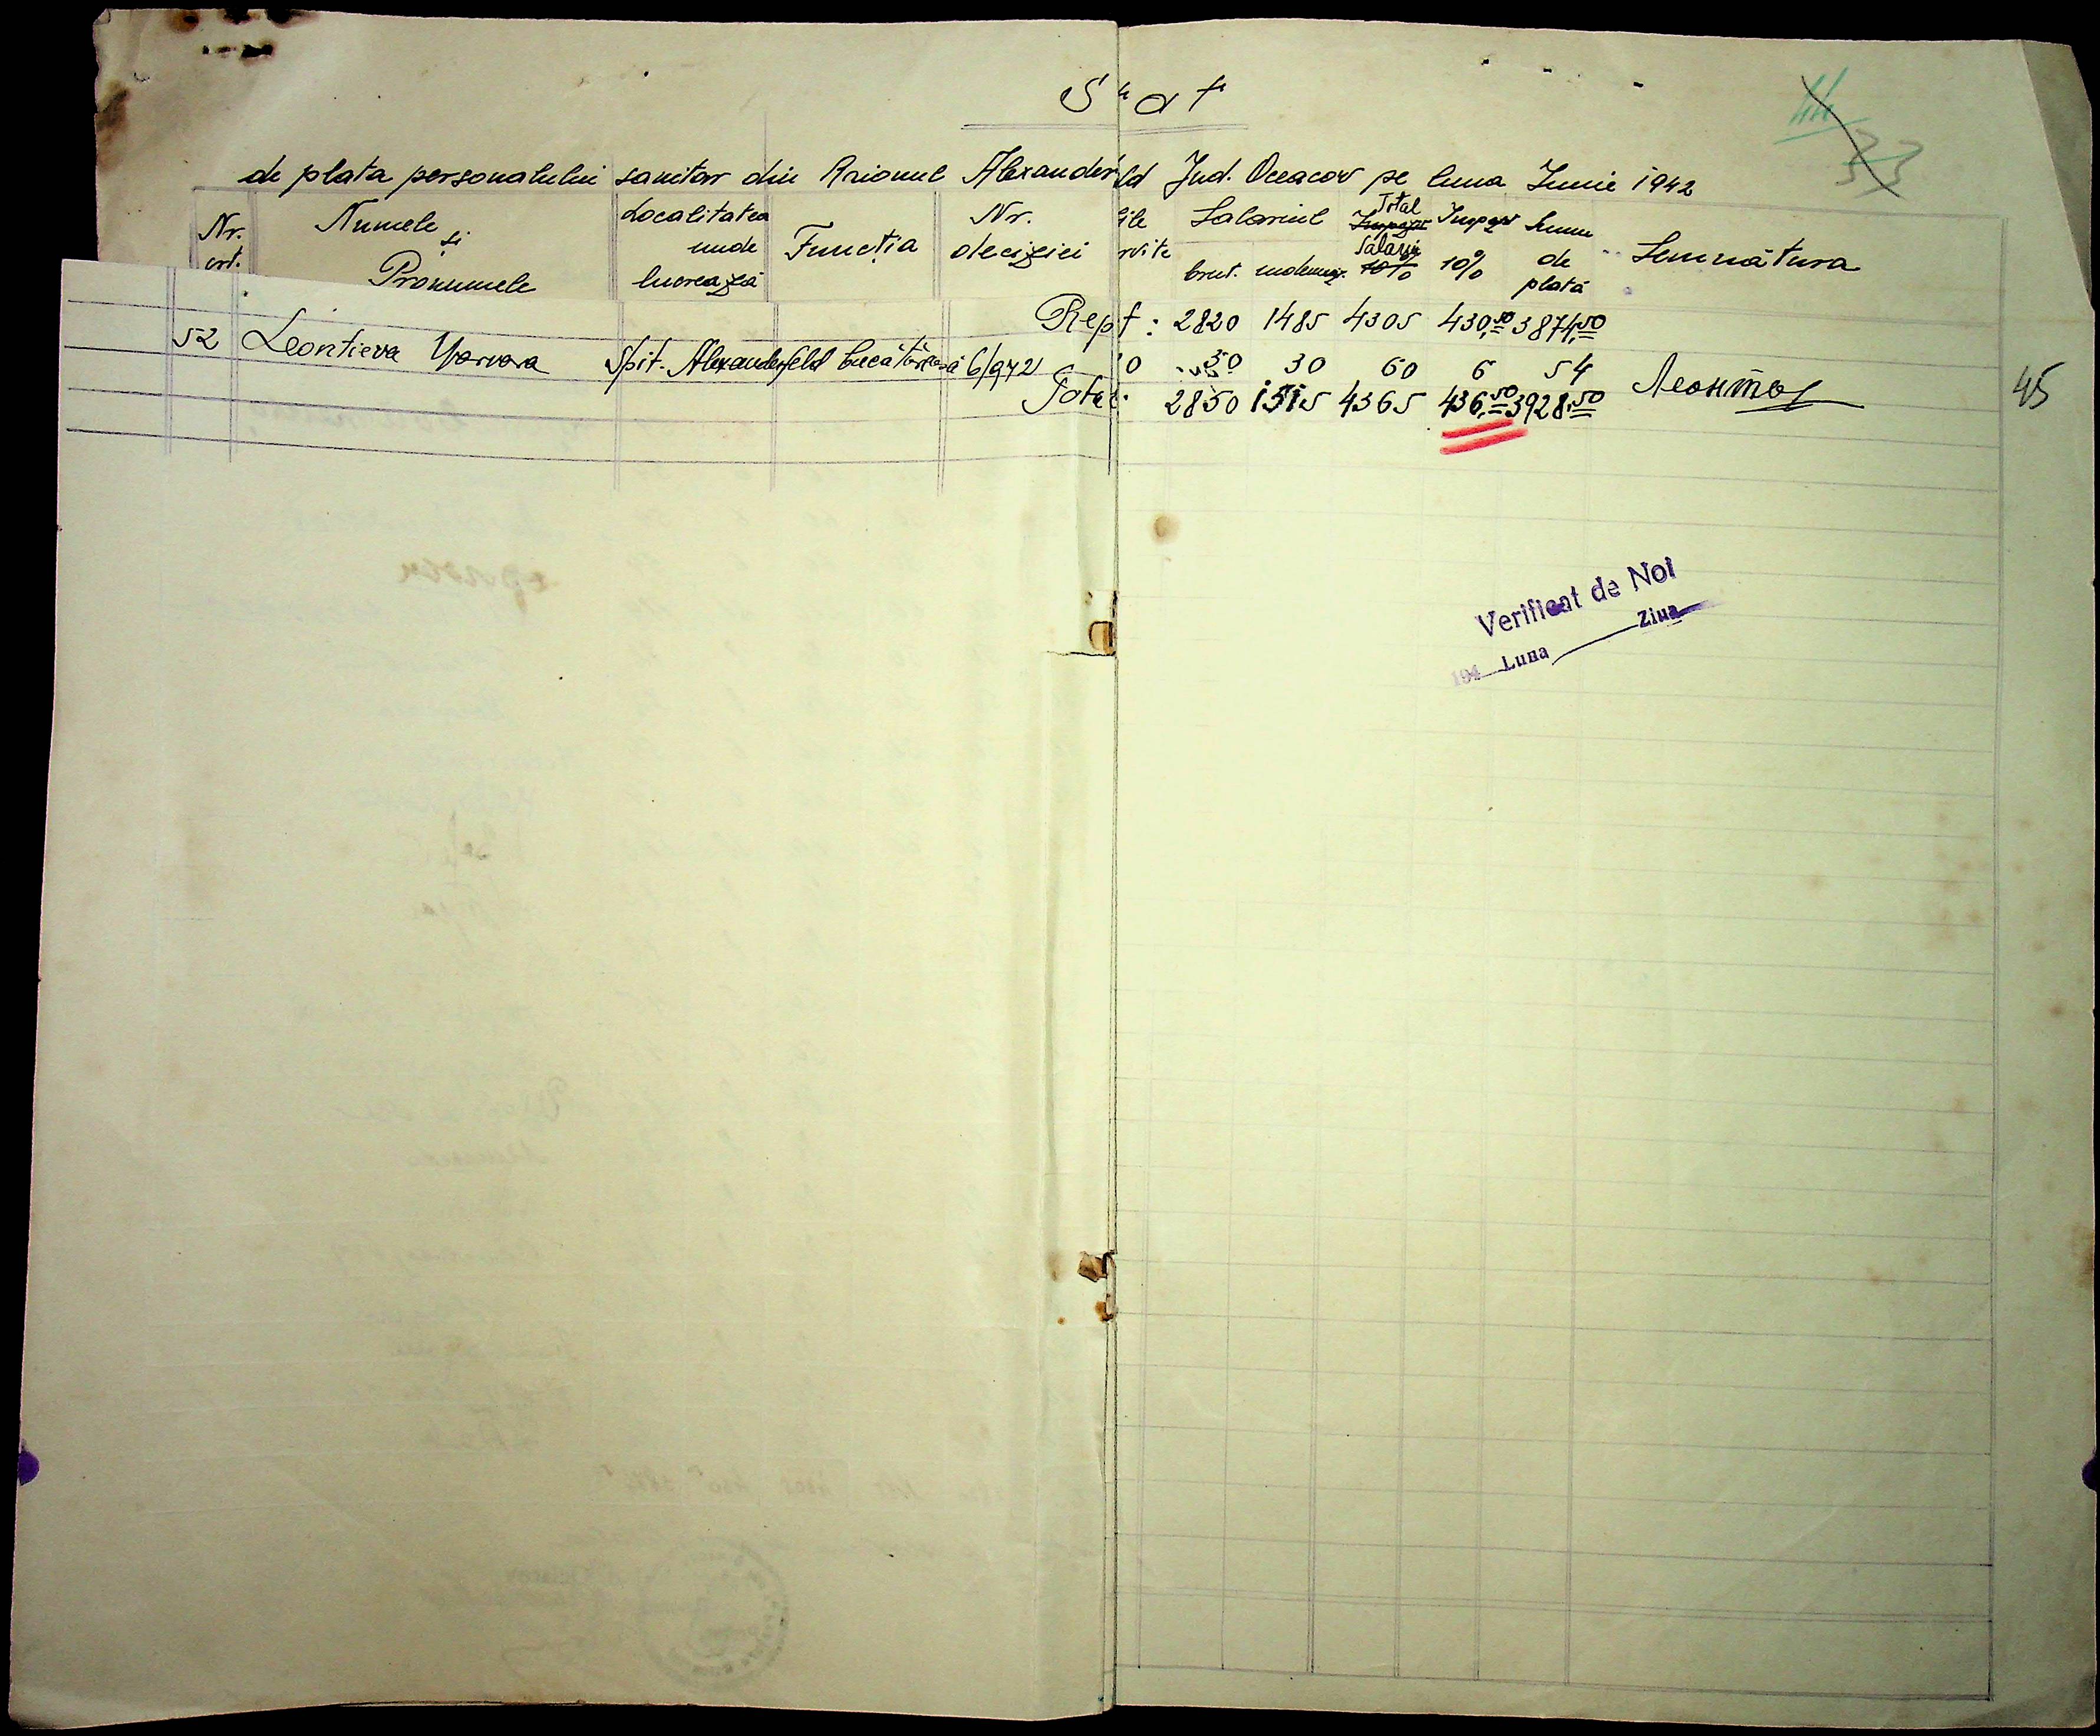 Stat
44
33
de plata personalului sanitar din Raionul Alexanderfeld Jud. Oceacov pe luna Iunie 1942
Nr. crt. Numele și Pronumele Localitatea unde lucrează Funcția Nr. deciziei Salariul brut. indemniz. Total Salarii 10% Impozit 10% Suma de plată Semnătura
Report: 2820 1485 4305 430,50 3874,50
52 Leontieva Varvara Spit. Alexanderfeld bucătăreasă 6/942 30 30 60 6 54 Леонто
Total: 2850 1515 4365 436,50 3928,50
45
Verificat de Noi
194 Luna Ziua